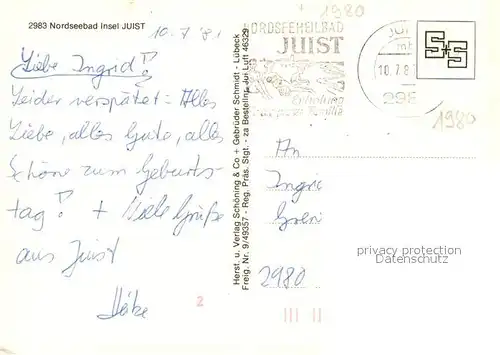 2983 Nordseebad Insel JUIST
10.7.81
Liebe Ingrid!
Leider verspätet - Alles
Liebe, alles Gute, alles
Schöne zum Geburts-
tag! + Viele Grüße
aus Juist
2
Herst. u. Verlag Schöning & Co + Gebrüder Schmidt - Lübeck
Freig. Nr. 9/49357 - Reg. Präs. Stgt. - za Bestellnr. Jui Luft 46329
1980
NORDSEEHEILBAD
JUIST
Erholung
10.7.8
298
1980
An
Ingrid
2980
privacy protection
Datenschutz